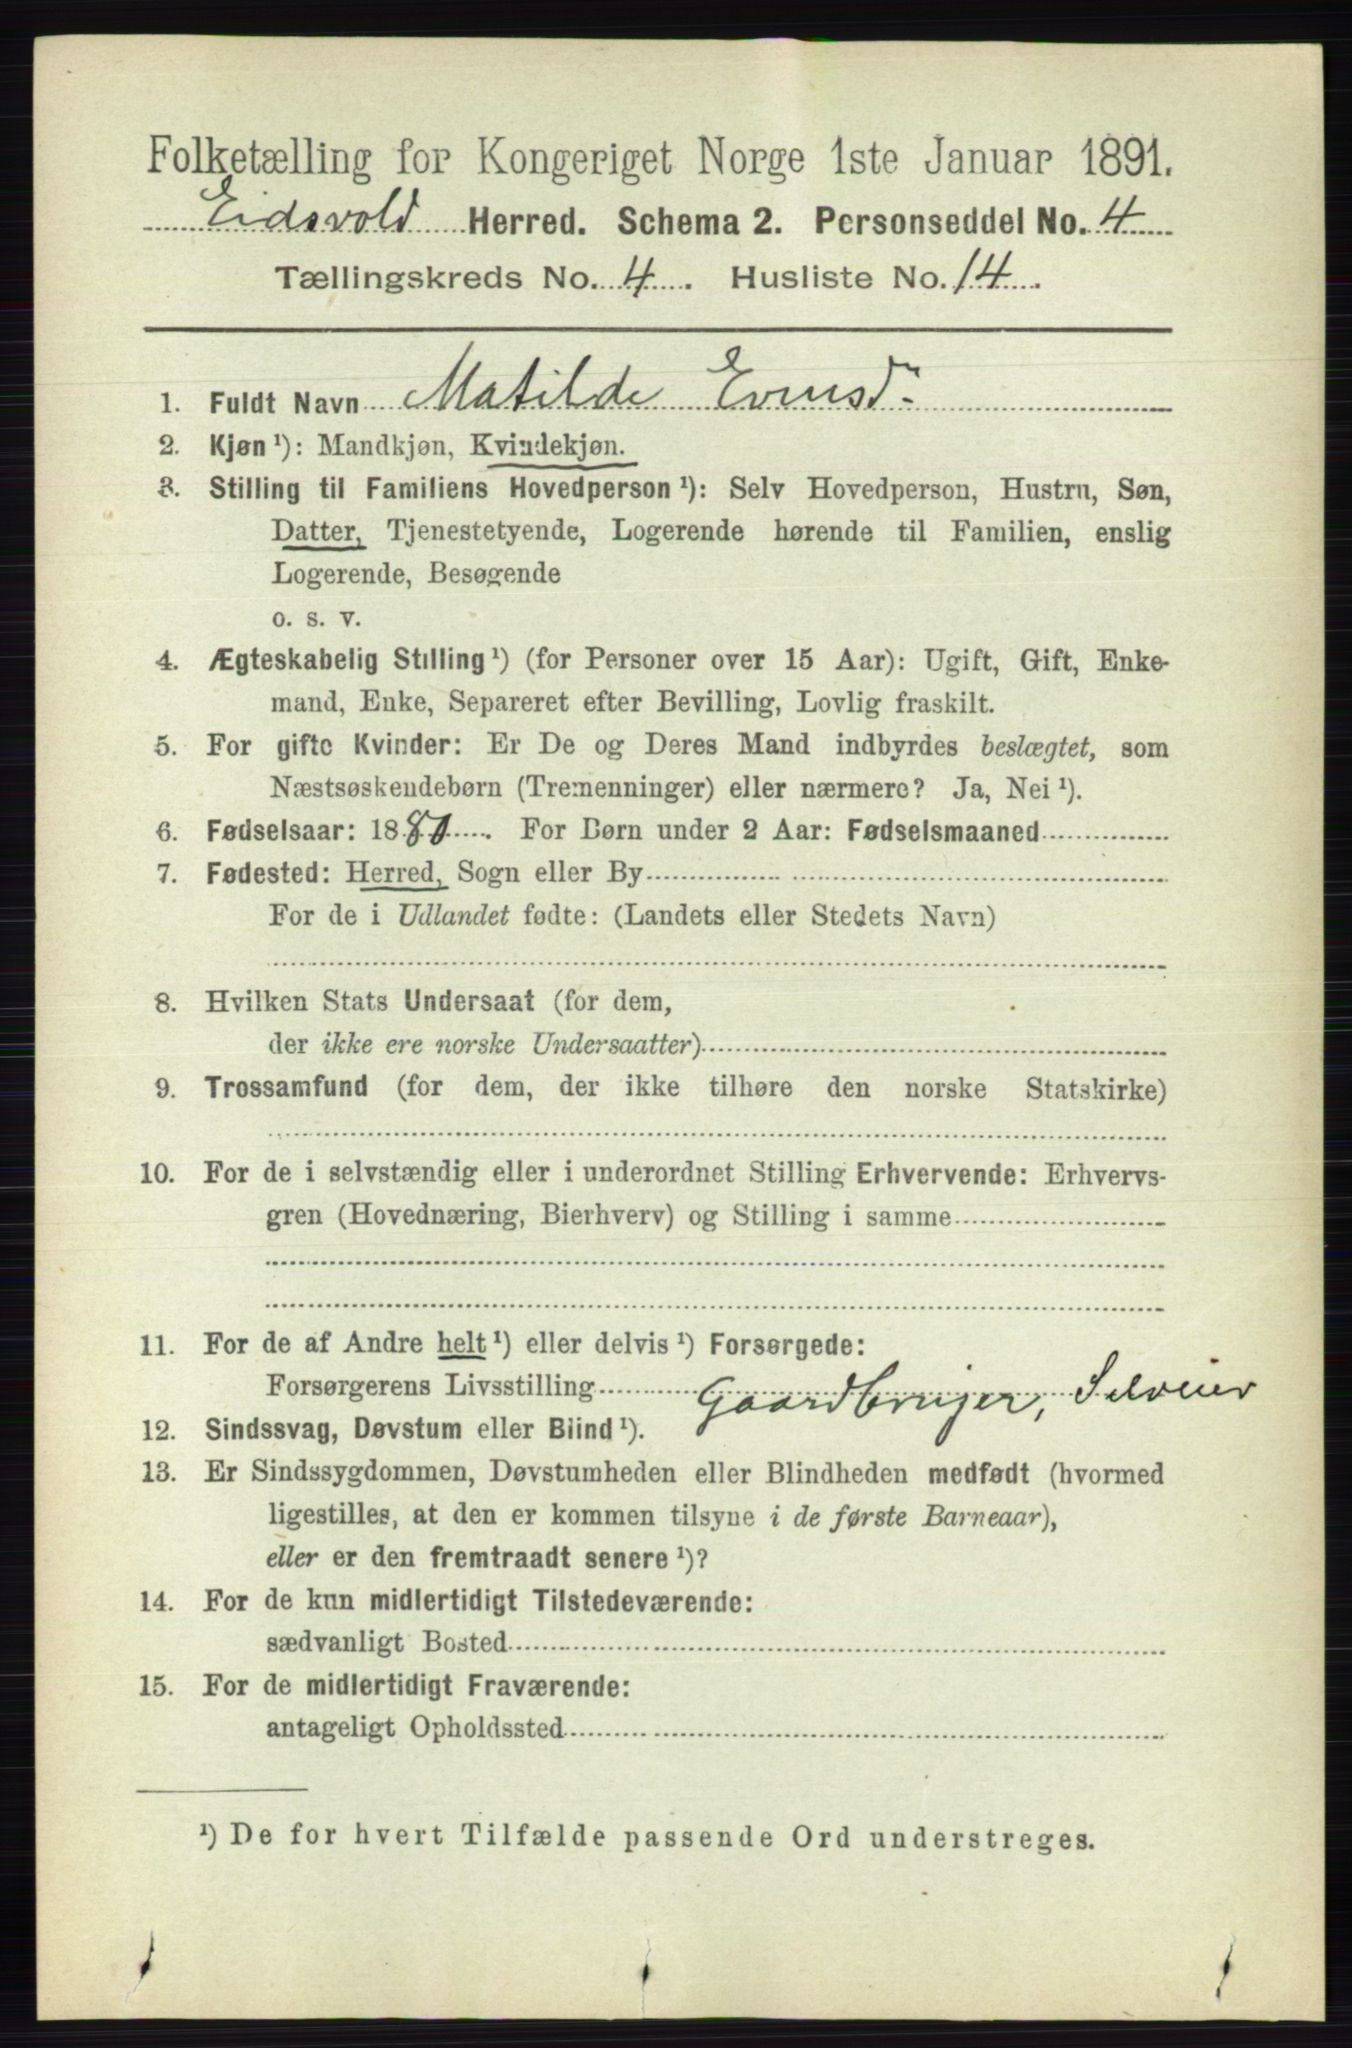 Folketælling for Kongeriget Norge 1ste Januar 1891.
Eidsvold Herred. Schema 2. Personseddel No. 4
Tællingskreds No. 4. Husliste No. 14.
1. Fuldt Navn Matilde Evensd.
2. Kjøn ¹): Mandkjøn, Kvindekjøn.
3. Stilling til Familiens Hovedperson ¹): Selv Hovedperson, Hustru, Søn,
Datter, Tjenestetyende, Logerende hørende til Familien, enslig
Logerende, Besøgende
o. s. v.
4. Ægteskabelig Stilling ¹) (for Personer over 15 Aar): Ugift, Gift, Enke-
mand, Enke, Separeret efter Bevilling, Lovlig fraskilt.
5. For gifte Kvinder: Er De og Deres Mand indbyrdes beslægtet, som
Næstsøskendebørn (Tremenninger) eller nærmere? Ja, Nei ¹).
6. Fødselsaar: 1880. For Børn under 2 Aar: Fødselsmaaned
7. Fødested: Herred, Sogn eller By
For de i Udlandet fødte: (Landets eller Stedets Navn)
8. Hvilken Stats Undersaat (for dem,
der ikke ere norske Undersaatter)
9. Trossamfund (for dem, der ikke tilhøre den norske Statskirke)
10. For de i selvstændig eller i underordnet Stilling Erhvervende: Erhvervs-
gren (Hovednæring, Bierhverv) og Stilling i samme
11. For de af Andre helt ¹) eller delvis ¹) Forsørgede:
Forsørgerens Livsstilling Gaardbruger, Selveier
12. Sindssvag, Døvstum eller Blind ¹).
13. Er Sindssygdommen, Døvstumheden eller Blindheden medfødt (hvormed
ligestilles, at den er kommen tilsyne i de første Barneaar),
eller er den fremtraadt senere ¹)?
14. For de kun midlertidigt Tilstedeværende:
sædvanligt Bosted
15. For de midlertidigt Fraværende:
antageligt Opholdssted
¹) De for hvert Tilfælde passende Ord understreges.